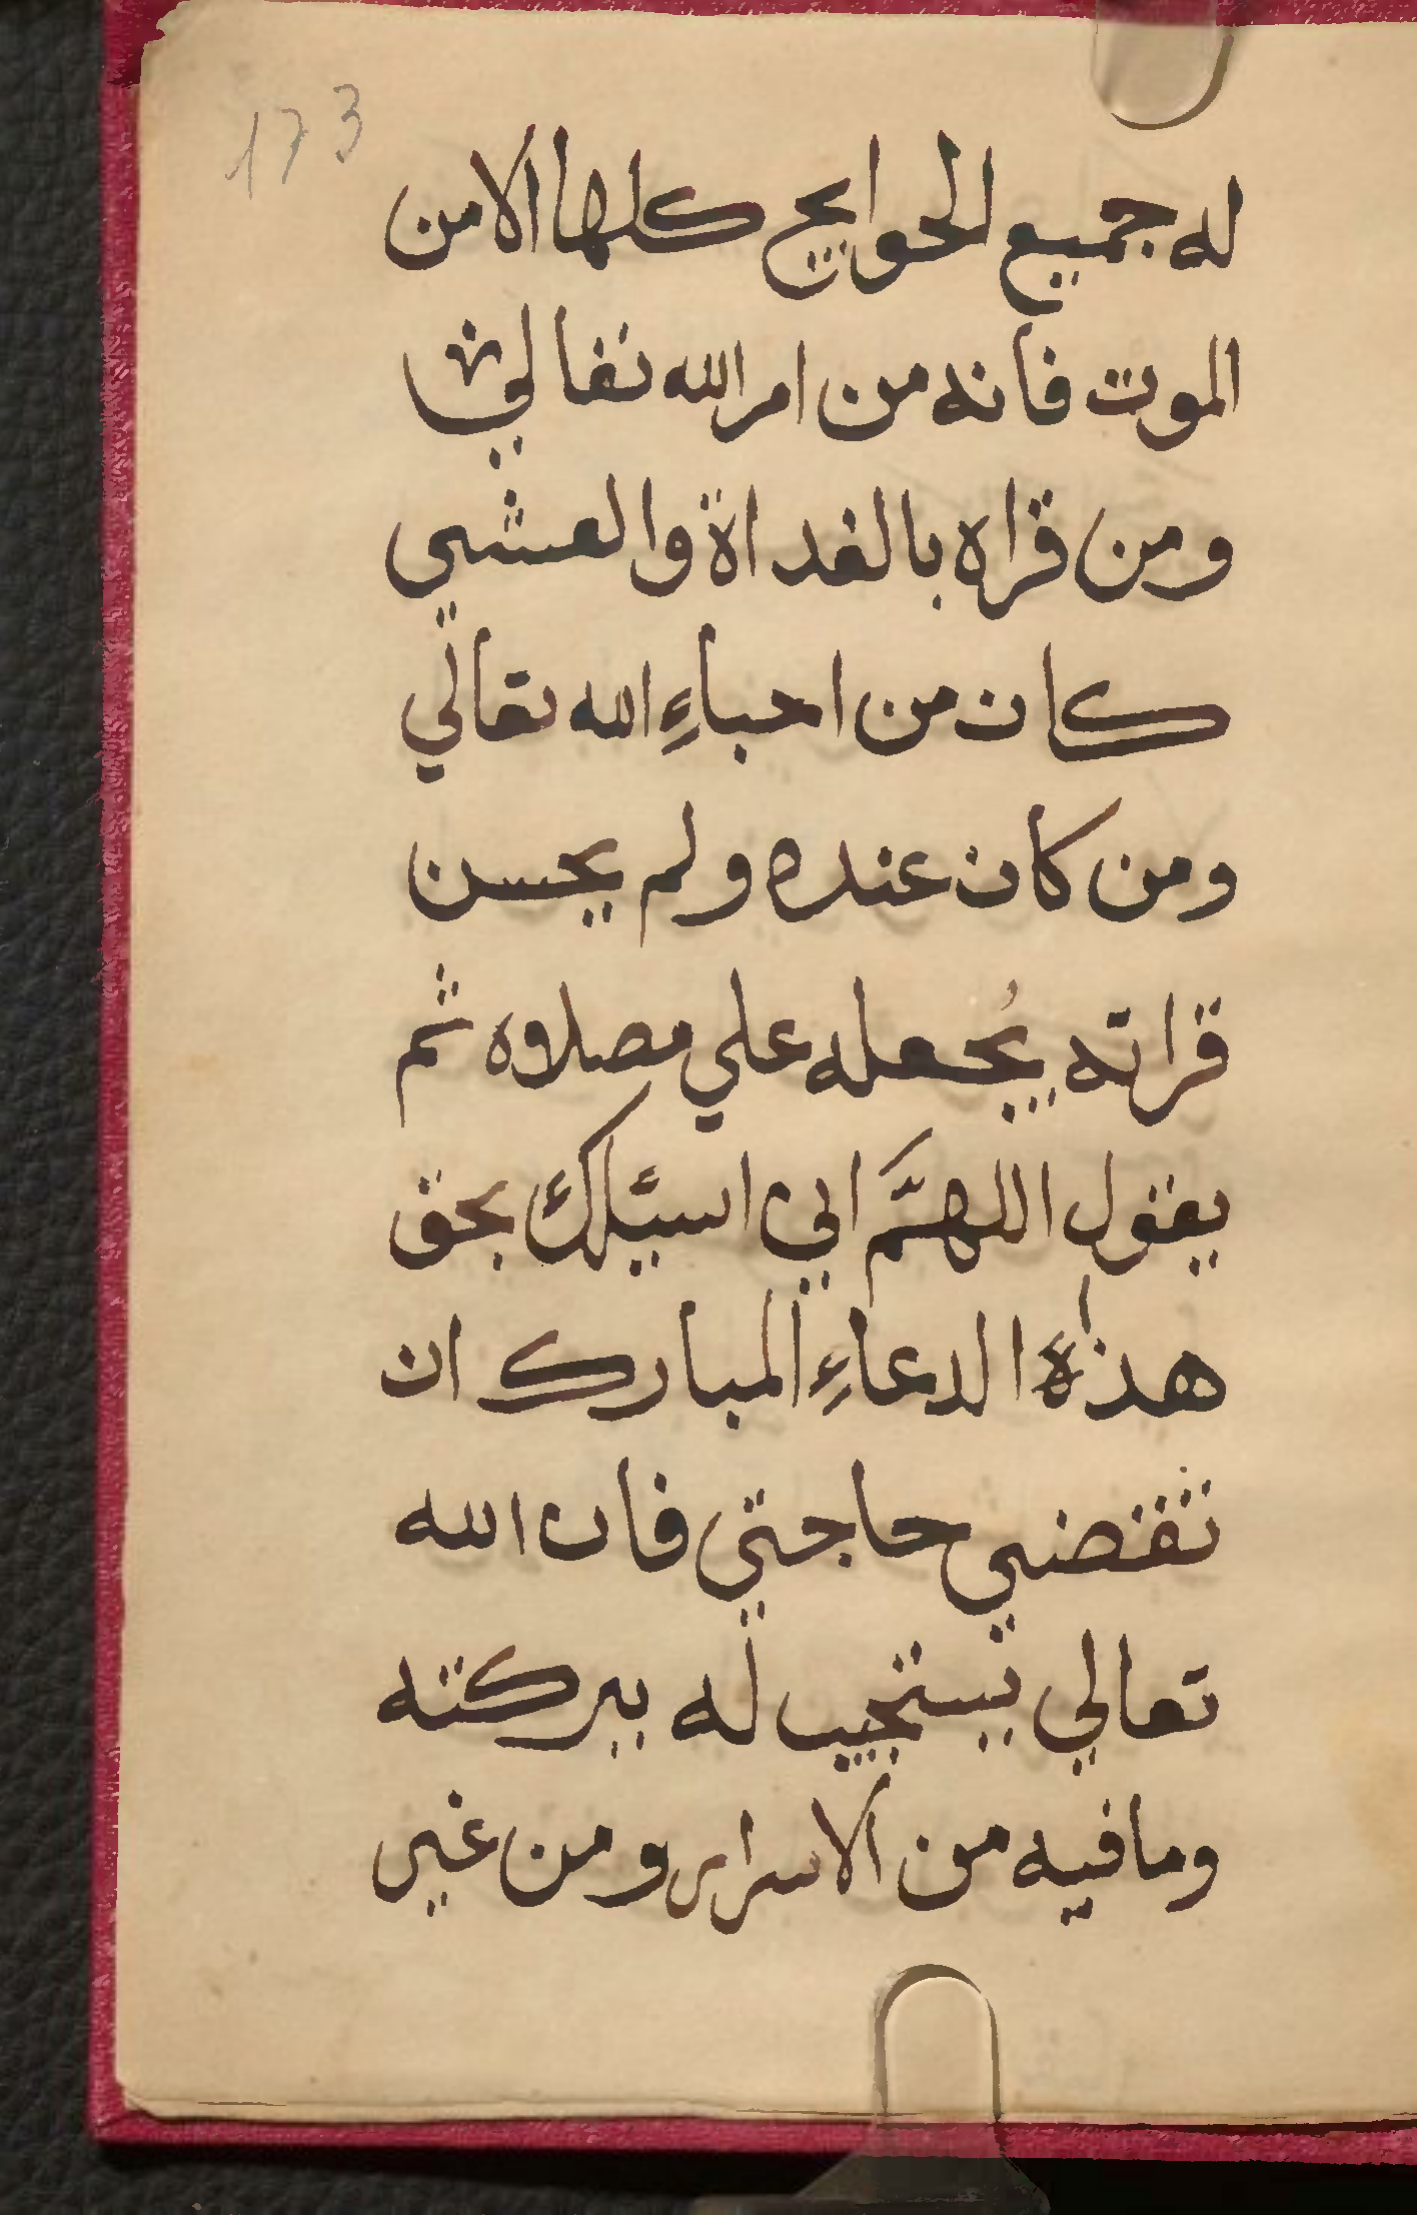 173
له جميع الحوايج كلها الا من
الموت فانه من امر الله تعالي
ومن قراه بالغداة والعشي
كان من احباءِ الله تعالي
ومن كان عنده ولم يحسن
قراته يُجعله علي مصلاه ثم
يقول اللهمَّ اني اسئلك بحق
هذه الدعاءِ المبارك ان
تقضي حاجتي فان الله
تعالي يستجيب له ببركته
وما فيه من الاسرار ومن غير